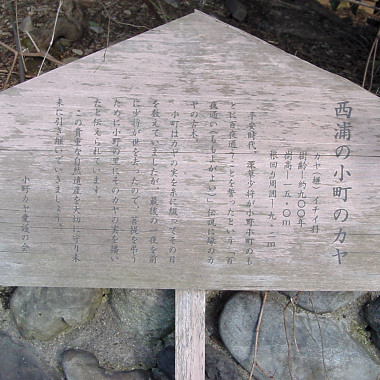 西浦の小町のカヤ
カヤ(榧)イチイ科
樹齢 約九〇〇年
樹高 一五・〇m
根回り周囲 一九・二m
平安時代、深草少将が小野小町のも
とに百夜通うことを誓ったという「百
夜通い(ももよがよい)」伝説に縁のカ
ヤの大木。
小町はカヤの実を糸に綴ってその日
を数えていましたが、最後の一夜を前
に少将が世を去ったので、菩提を弔う
ために小野の里にそのカヤの実を播い
たと伝えられています。
この貴重な自然遺産を大切に守り未
来に引き継いでいきましょう。
小野カヤ愛護の会